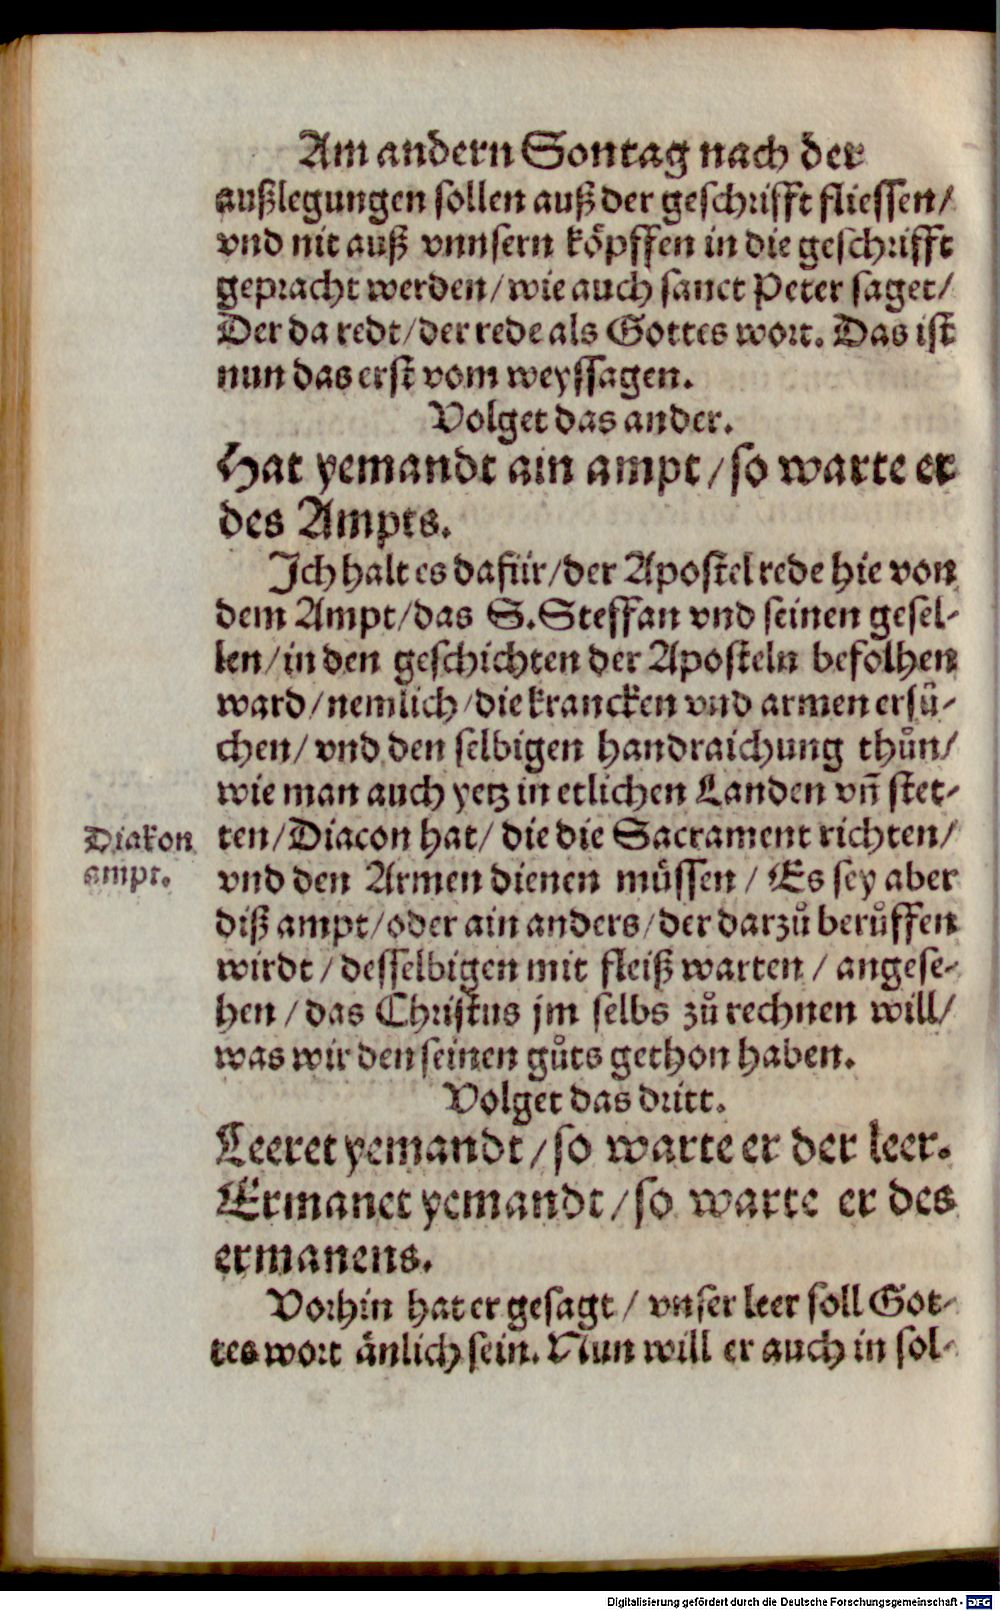 Am andern Sontag nach der
außlegungen sollen auß der geschrifft fliessen/
vnd nit auß vnnsern köpffen in die geschrifft
gepracht werden/ wie auch sanct Peter saget/
Der da redt/ der rede als Gottes wort. Das ist
nun das erst vom weyssagen.
Volget das ander.
Hat yemandt ain ampt/ so warte er
des Ampts.
Ich halt es dafür/ der Apostel rede hie von
dem Ampt/ das S. Steffan vnd seinen gesel-
len/ in den geschichten der Aposteln befolhen
ward/ nemlich/ die krancken vnd armen ersů-
chen/ vnd den selbigen handraichung thůn/
wie man auch yetz in etlichen Landen vn̄ stet-
Diakon
ampt.
ten/ Diacon hat/ die die Sacrament richten/
vnd den Armen dienen müssen/ Es sey aber
diß ampt/ oder ain anders/ der darzů berůffen
wirdt/ desselbigen mit fleiß warten/ angese-
hen/ das Christus jm selbs zů rechnen will/
was wir den seinen gůts gethon haben.
Volget das dritt.
Leeret yemandt/ so warte er der leer.
Ermanet yemandt/ so warte er des
ermanens.
Vorhin hat er gesagt/ vnser leer soll Got-
tes wort änlich sein. Nun will er auch in sol-
Digitalisierung gefördert durch die Deutsche Forschungsgemeinschaft - DFG